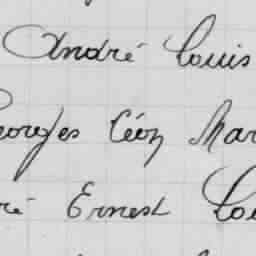 André Louis
Georges Léon Mar
ré Ernest Lou